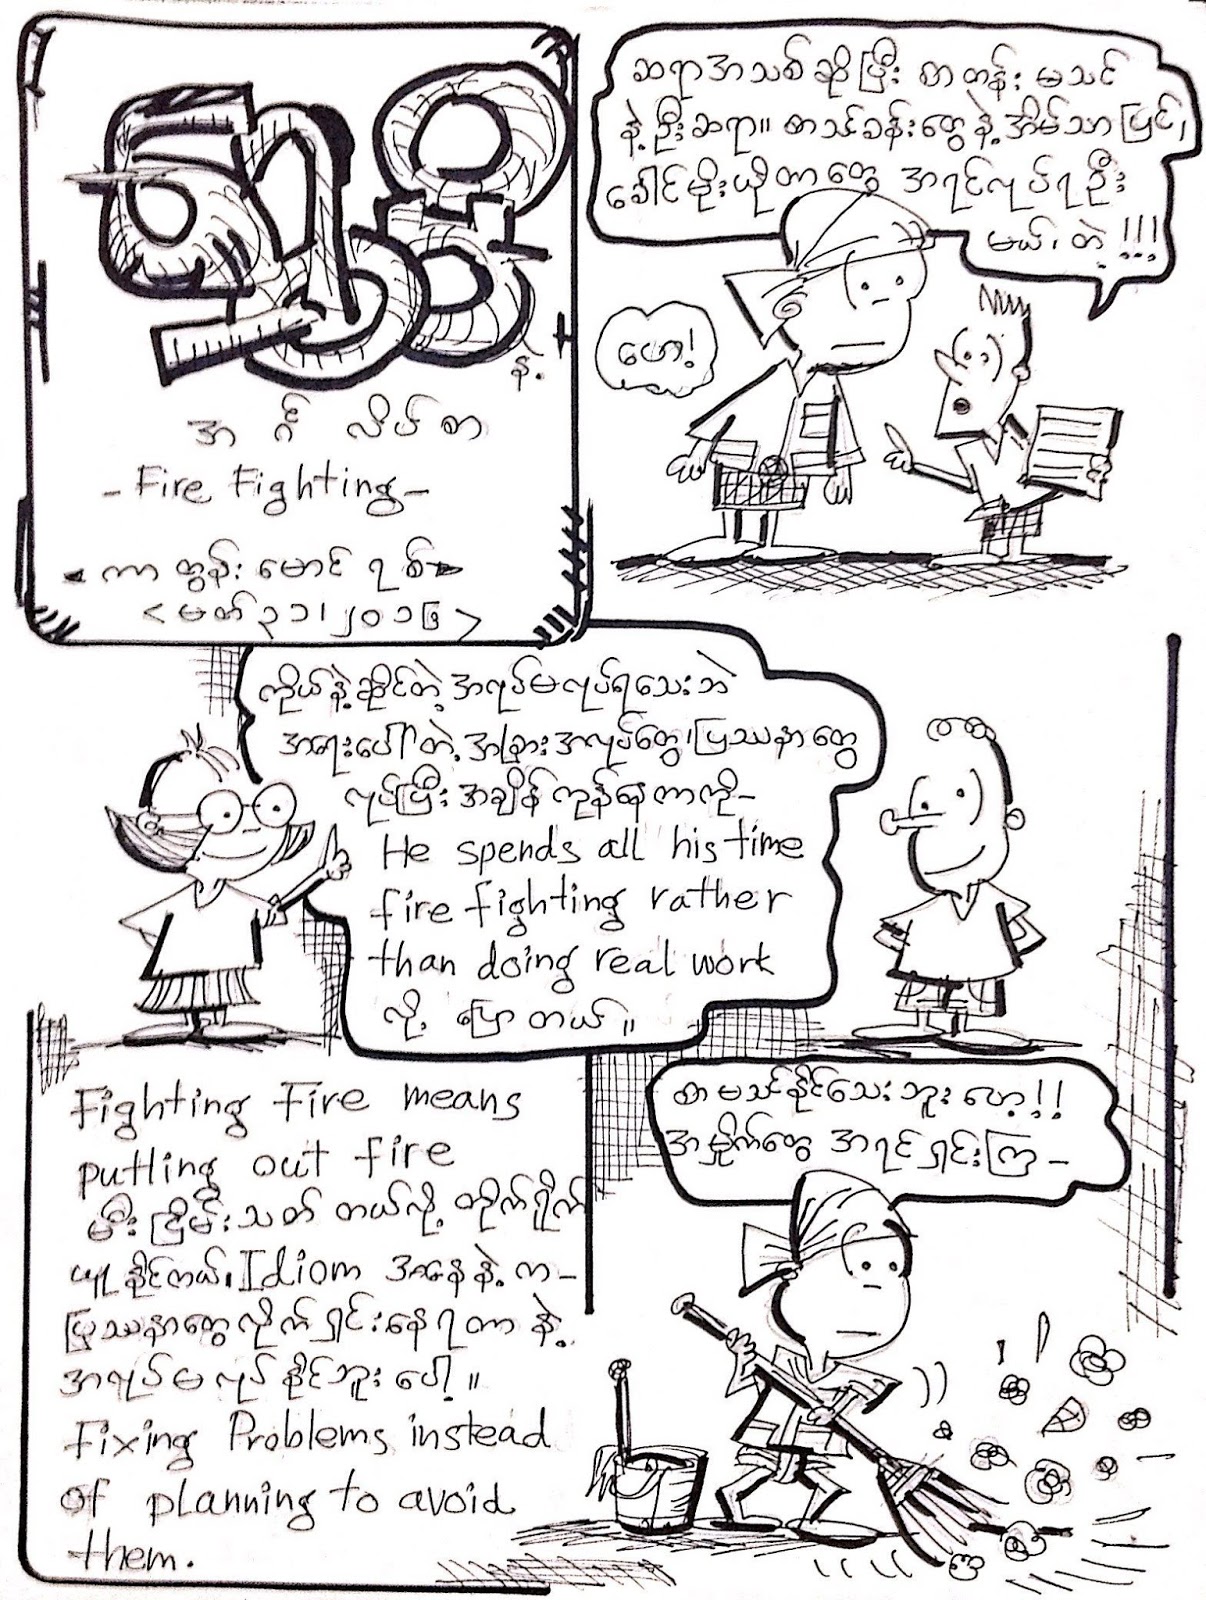 နဲ့
အင်္ဂလိပ်စာ
- Fire Fighting -
ကာတွန်းမောင်ရစ်
< မတ် ၃၁၊ ၂၀၁၆ >
ဆရာအသစ်ဆိုပြီး စာတန်းမသင်
နဲ့ဦးဆရာ။ စာသင်ခန်းတွေနဲ့ အိမ်သာပြင်၊
ခေါင်မိုးယိုတာတွေ အရင်လုပ်ရဦး
မယ်၊ တဲ့ !!!
ဟော!
ကိုယ်နဲ့ဆိုင်တဲ့ အလုပ်မလုပ်ရသေးဘဲ
အရေးပေါ်တဲ့ အခြားအလုပ်တွေ၊ ပြဿနာတွေ
လုပ်ပြီး အချိန်ကုန်နေတာကို -
He spends all his time
fire fighting rather
than doing real work
လို့ ပြောတယ်။
Fighting Fire means
putting out fire
မီးငြှိမ်းသတ်တယ်လို့ တိုက်ရိုက်
ယူနိုင်တယ်၊ Idiom အနေနဲ့က -
ပြဿနာတွေလိုက်ရှင်းနေရတာနဲ့
အလုပ်မလုပ်နိုင်ဘူးပေါ့။
Fixing Problems instead
of planning to avoid
them.
စာမသင်နိုင်သေးဘူးဟေ့!!
အမှိုက်တွေ အရင်ရှင်းကြ -